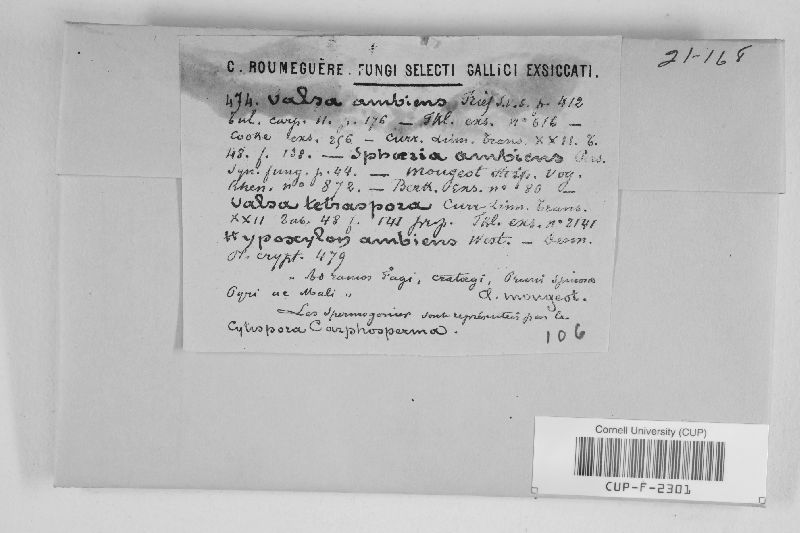 21-168
C. ROUMEGUÈRE. FUNGI SELECTI GALLICI EXSICCATI.
474. Valsa ambiens Fries S.v.s. p. 412
Tul. carp. II. p. 176 — Thl. exs. n° 616 —
Cooke exs. 256 — Curr. Linn. trans. XXII. t.
48. f. 138. — Sphæria ambiens Pers.
Syn. fung. p. 44. — Mougeot stirp. Vog.
Rhen. n° 872. — Berk. exs. n° 80 —
Valsa tetraspora Curr. Linn. trans.
XXII Tab. 48 f. 141 Thl. exs. n° 2141
Hypoxylon ambiens West. — Desm.
Pl. crypt. 479
" Ad ramos Fagi, Cratægi, Pruni spinosa
Pyri ac Mali " A. Mougeot.
— Les spermogonies sont représentées par le
Cytispora Carphosperma.
106
Cornell University (CUP)
CUP-F-2301